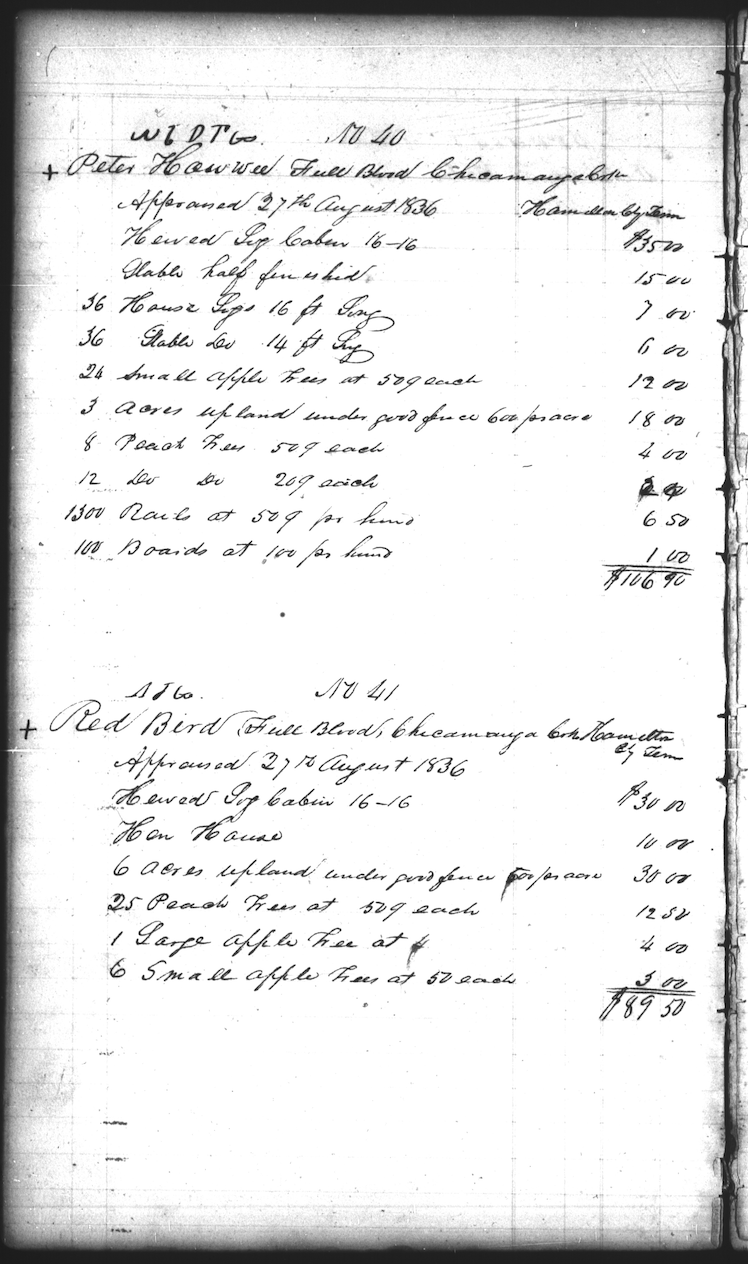 No 40
+ Peter Howwee Full Blood Chicamauga Crk
Appraised 27th August 1836 Hamilton Cty Tenn
Hewed Log Cabin 16-16 $35 00
Stable half finishid 15 00
36 House Logs 16 ft Long 7 00
36 Stable Do 14 ft Lng 6 00
24 Small apple trees at 50¢ each 12 00
3 acres upland under good fence 600 pr acre 18 00
8 Peach Trees 50¢ each 4 00
12 Do Do 20¢ each
1300 Rails at 50¢ pr hund 6 50
100 Boards at 100 pr hund 1 00
$106 90
No 41
+ Red Bird Full Blood, Chicamauga Crk Hamilton
Cty Tenn
Appraised 27th August 1836
Hewed Log Cabin 16-16 $30 00
Hen House 10 00
6 acres upland under good fence 500 pr acre 30 00
25 Peach Trees at 50¢ each 12 50
1 Large apple tree at 4 4 00
6 Small apple trees at 50 each 3 00
$89 50